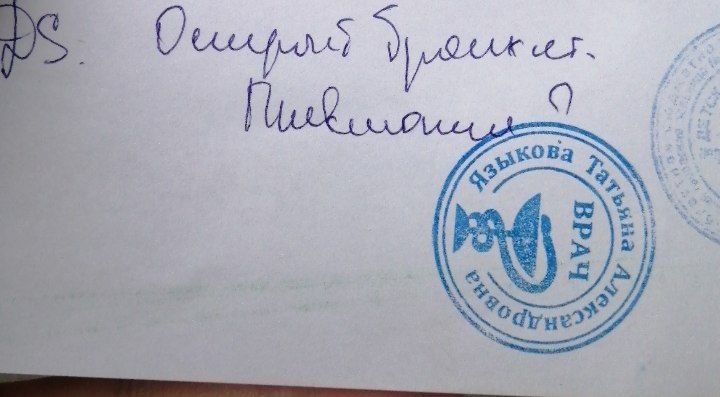 DS. Острый бронхит.
Пневмония?
Языкова Татьяна Александровна
ВРАЧ